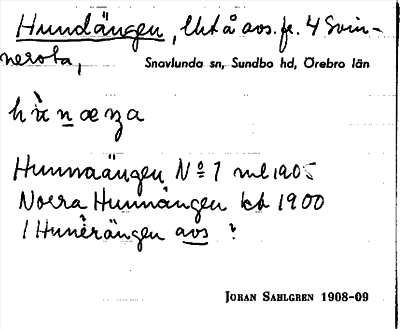 Hundängen, Utå avs. fr. 4 Svin-
nersta,
Snavlunda sn, Sundbo hd, Örebro län
Hunnaängen No 1 ml 1905
Norra Hunnängen kb 1900
1 Hunerängen avs ?
JÖRAN SAHLGREN 1908-09